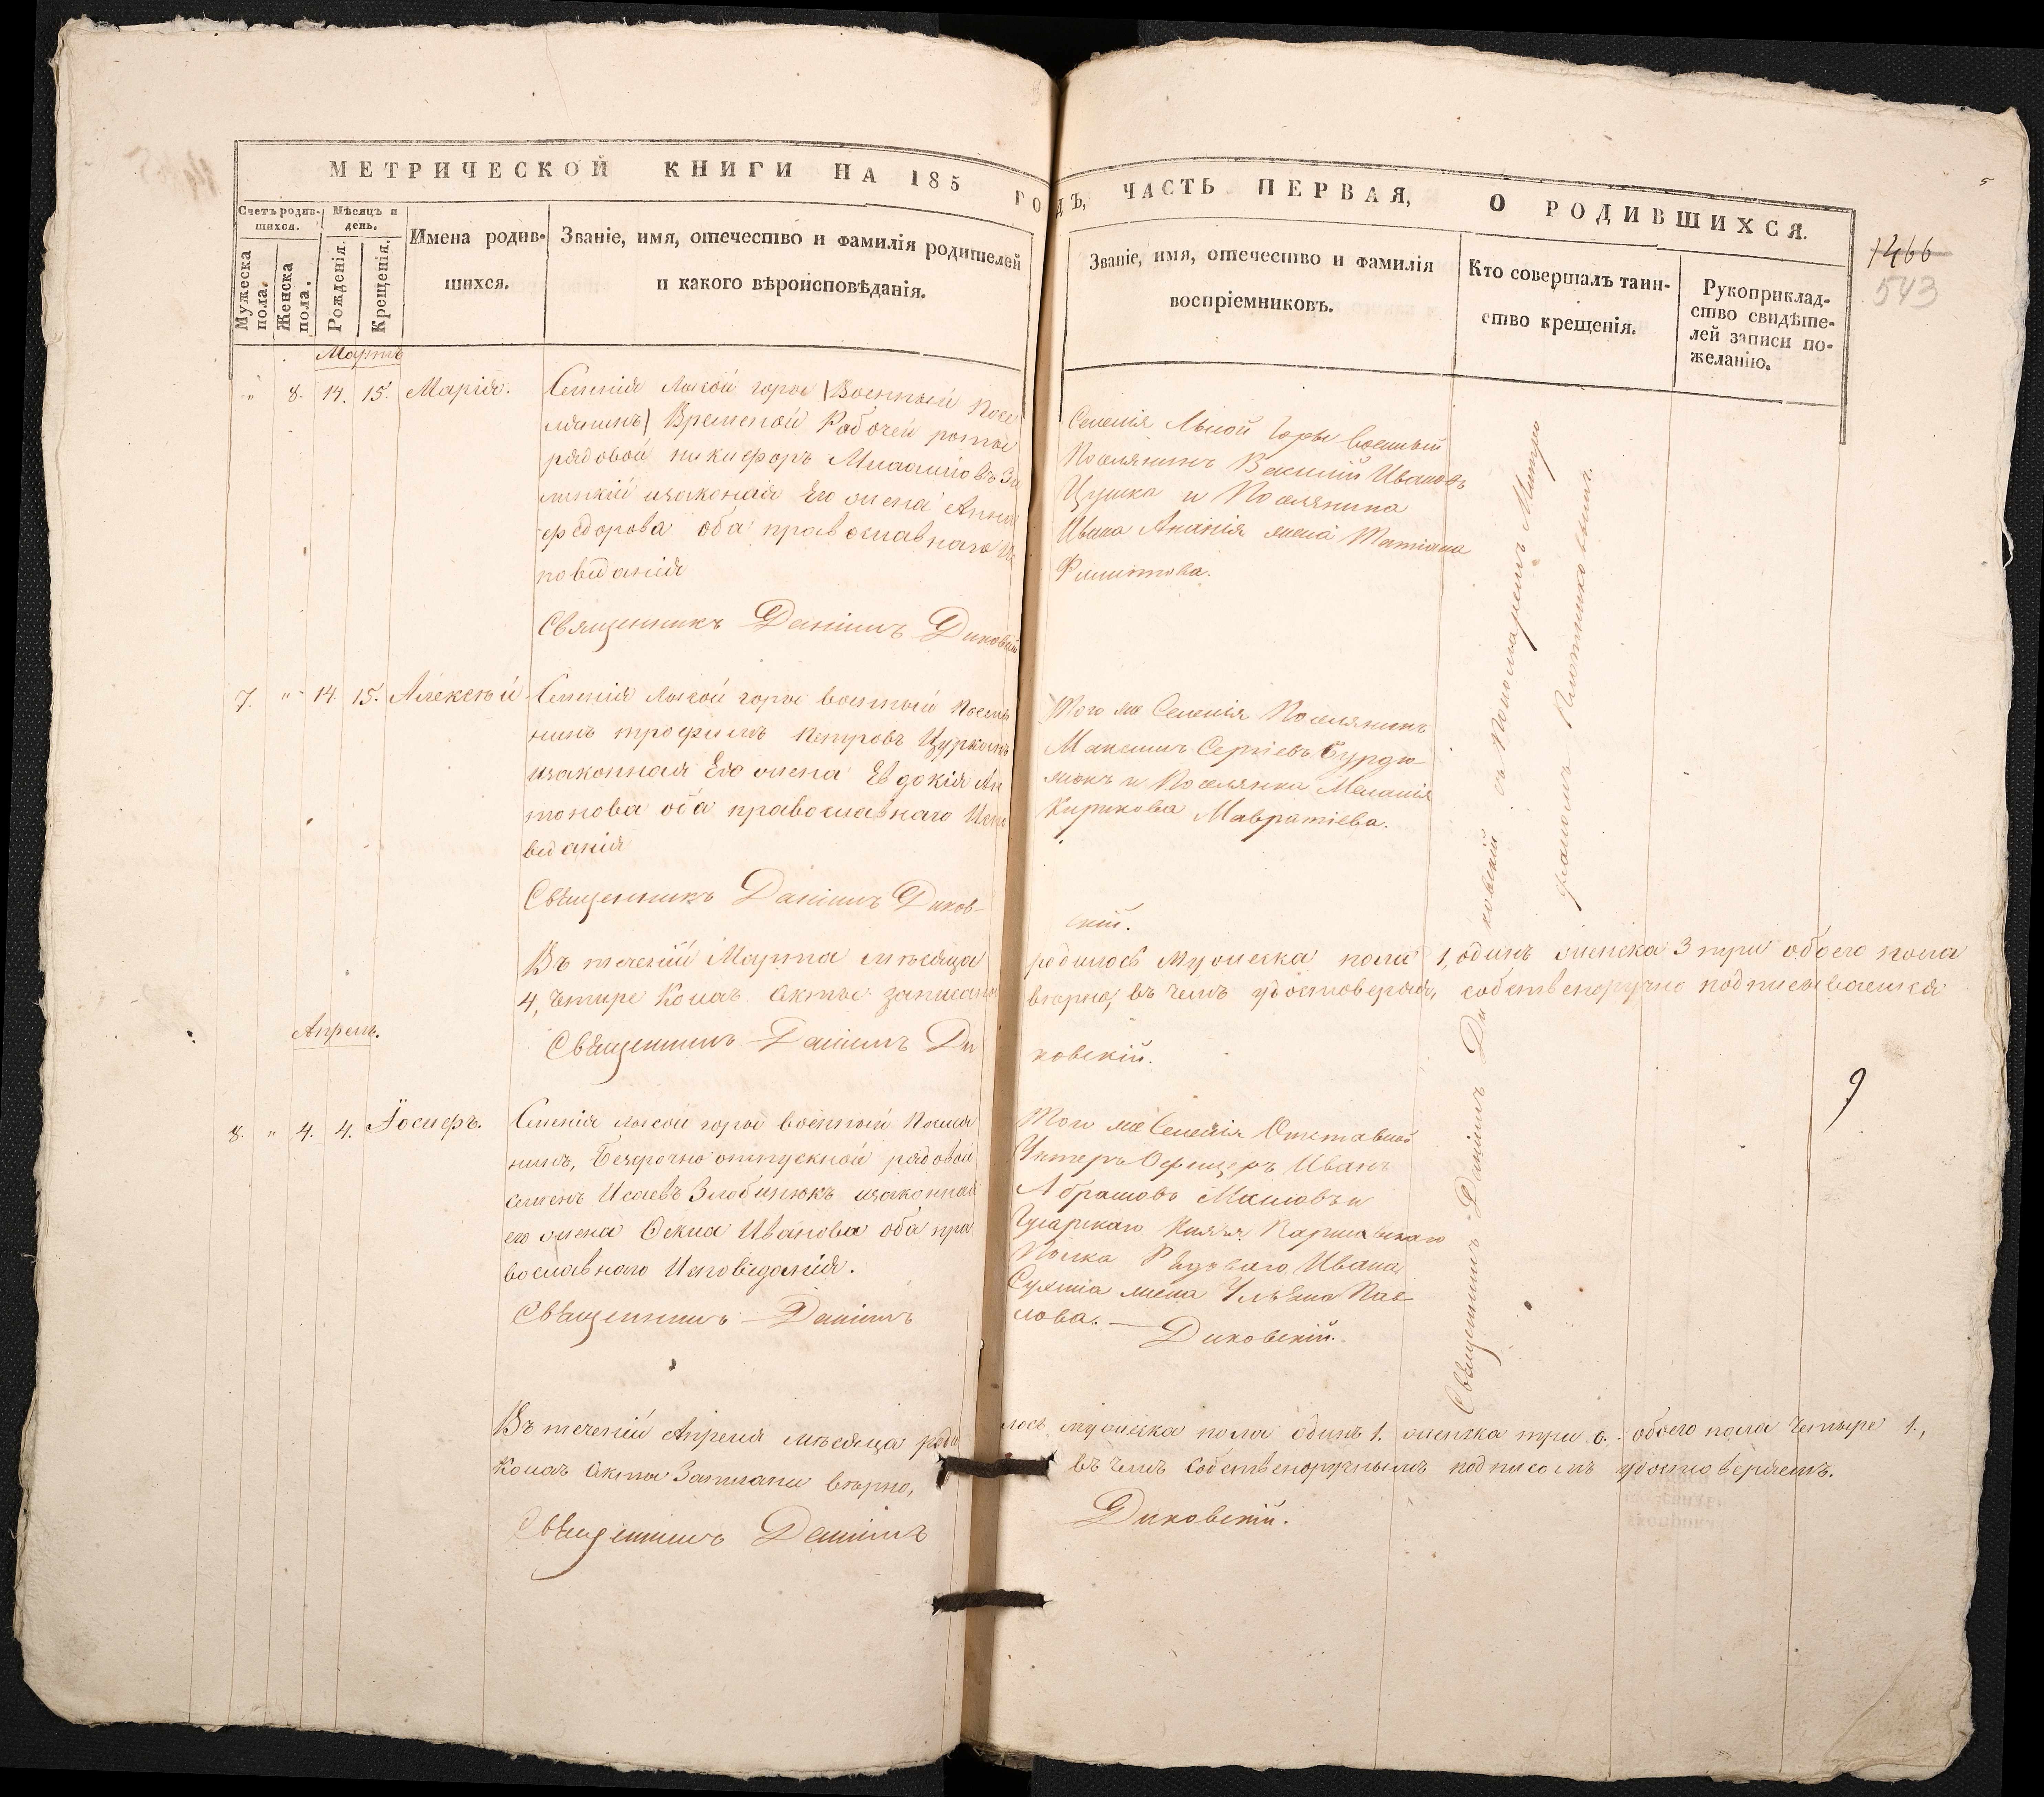 МЕТРИЧЕСКОЙ КНИГИ НА 185 ГОДЪ, ЧАСТЬ ПЕРВАЯ, О РОДИВШИХСЯ.
5
1466
543
Счетъ родившихся.
Мужеска пола.
Женска пола.
Мѣсяцъ и день.
Рожденія.
Крещенія.
Имена родившихся.
Званіе, имя, отечество и фамилія родителей
и какого вѣроисповѣданія.
Званіе, имя, отечество и фамилія
воспріемниковъ.
Кто совершалъ таин-
ство крещенія.
Рукоприклад-
ство свидѣте-
лей записи по-
желанію.
Мартъ
" 8. 14. 15. Марія.
Селенія лысой горы (Военный посе
лянинъ) Временой Рабочей роты
рядовой никифоръ
изаконая Его жена Анна
федорова оба православнаго Ис
повѣданія
Священникъ Даніилъ Диковскій
Селенія Лысой Горы военный
Поселянинъ Василій Ивановъ
Цушка и Поселянина
Ивана Ананія жена Татіана
Филипова.
7. " 14. 15. Алексѣй
Селенія лысой горы военный поселя
нинъ трофимъ Петровъ Цурканъ
изаконная Его жена Евдокія Ан
тонова оба православнаго Испо
вѣданія
Священникъ Даніилъ Диков-
скій.
Того же Селенія Поселянинъ
Максимъ Сергіевъ Бурдю-
жанъ и Поселянка Меланія
Кирикова Мавратіева.
Въ теченій Марта мѣсяца родилось мужеска пола 1, одинъ женска 3 три обоего пола
4, четыре коихъ акты записаны вѣрно, въ чемъ удостоверяя, собственоручно подписываемся
Священникъ Даніилъ Ди
ковскій.
Апрель.
8. " 4. 4. Іосифъ.
Селенія лысой горы военный Поселя
нинъ, Безсрочно отпускной рядовой
семенъ Исаевъ Злобинюкъ изаконная
его жена Ѳекла Иванова оба пра
вославнаго Исповѣданія.
Священникъ Даніилъ
Того же Селенія Отставной
Унтеръ Офицеръ Иванъ
Абрамовъ и
Гусарскаго Князя
Полка Рядоваго Ивана
жена Ульяна Пав
лова. — Диковскій.
9
Въ теченій Апреля мѣсяца роди
лось мужеска пола одинъ 1. женска три 0. обоего пола четыре 1.,
коихъ акты Записаны вѣрно,
въ чемъ собственоручнымъ подписомъ удостоверяемъ.
Священникъ Даніилъ
Диковскій.
Священникъ Даніилъ Диковскій съ Пономаремъ Митро
фаномъ Плотниковымъ.